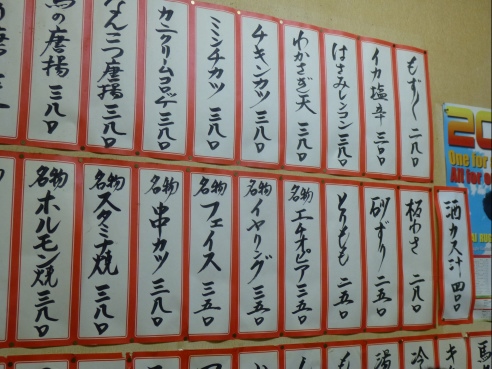 もずく 二八〇
イカ塩辛 三〇〇
はさみレンコン 三八〇
わかさぎ天 三八〇
チキンカツ 三八〇
ミンチカツ 三八〇
カニクリームコロッケ 三八〇
なんこつ唐揚 三八〇
の唐揚 三八〇
酒カス汁 四〇〇
板わさ 二八〇
砂ずり 二五〇
とりもも 二五〇
名物 エチオピア 三五〇
名物 イヤリング 三五〇
名物 フェイス 三五〇
名物 串カツ 三八〇
名物 スタミナ焼 三八〇
名物 ホルモン焼 三八〇
20
One for
All for o
馬
キ
冷
湯
も